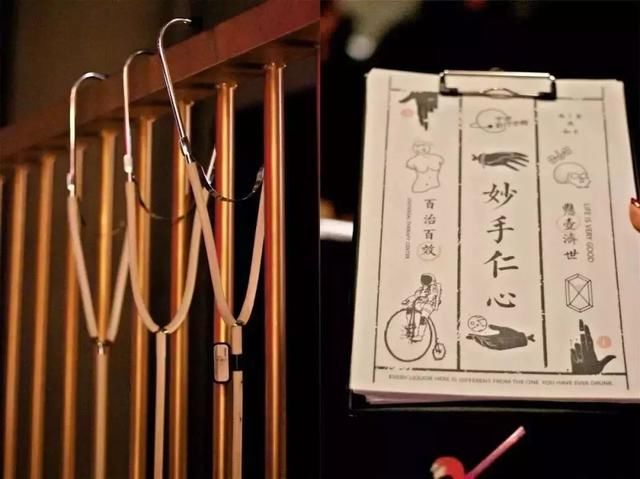 百治百效
UNIVERSAL THERAPY CENTER
妙手仁心
懸壺濟世
LIFE IS VERY GOOD
EVERY LIQUOR HERE IS DIFFERENT FROM THE ONE YOU HAVE EVER DRUNK.